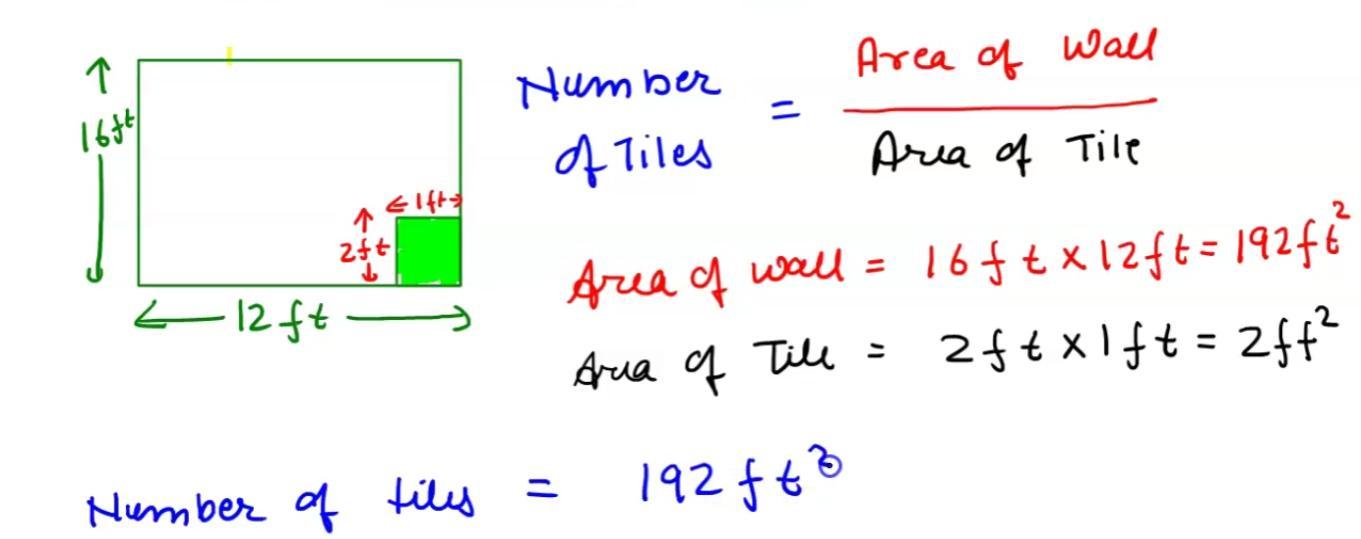 16ft
12 ft
1ft
2ft
Number of Tiles = Area of Wall / Area of Tile
Area of wall = 16 ft x 12 ft = 192 ft²
Area of Tile = 2 ft x 1 ft = 2 ff²
Number of tiles = 192 ft²